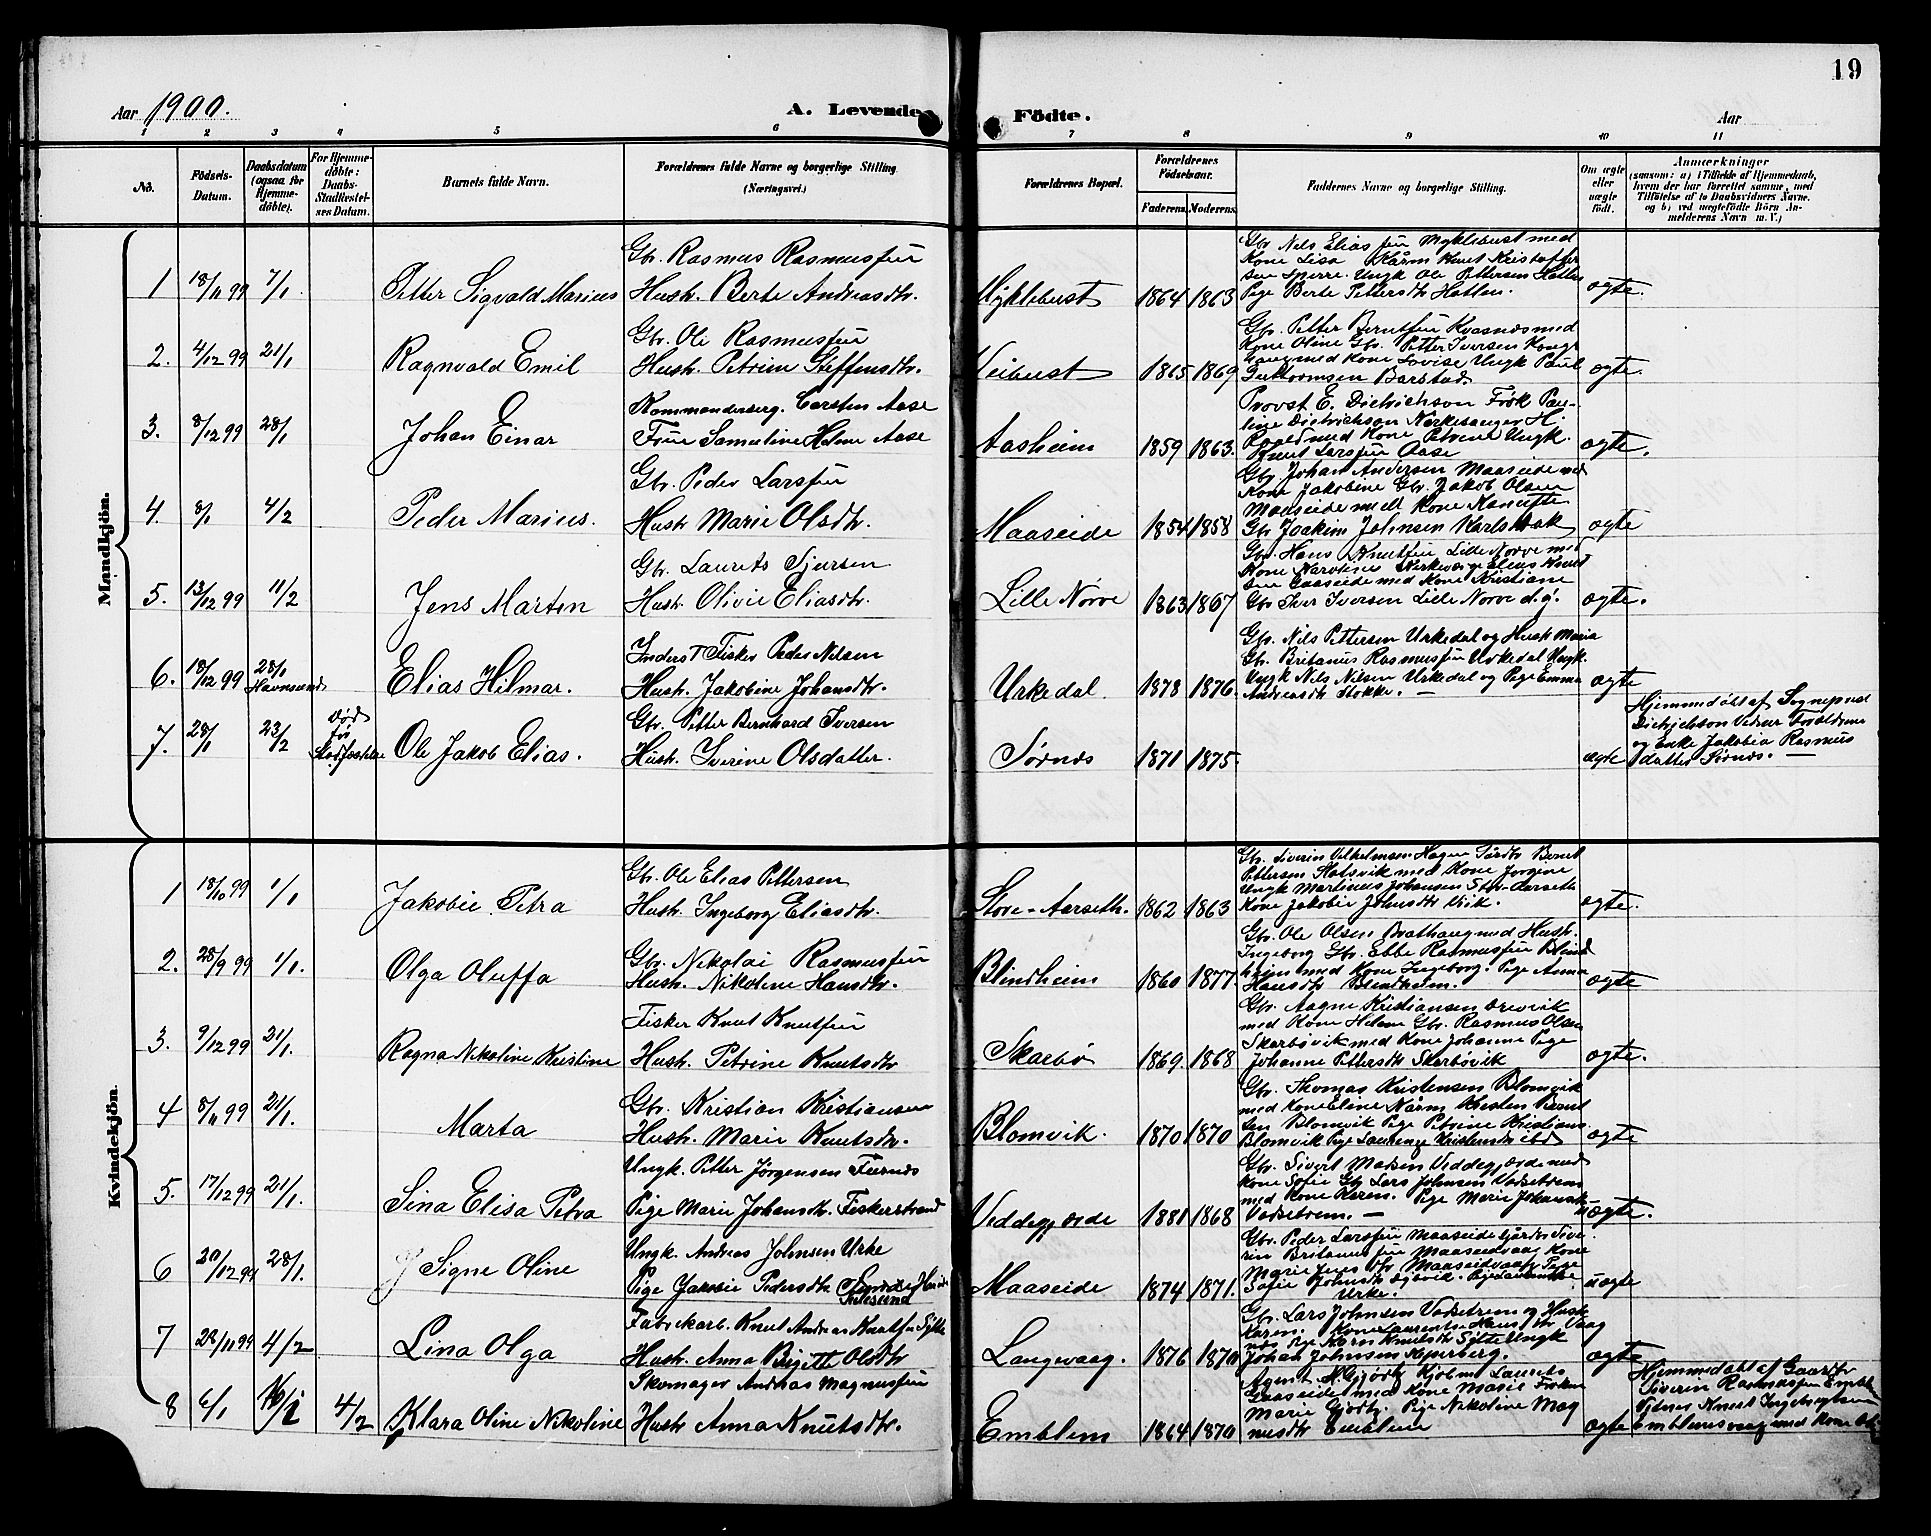 19
Aar 1900.
A. Levende Födte.
Aar
1 2 3 4 5 6 7 8 9 10 11
No.
Födsels-Datum.
Daabsdatum (ogsaa for Hjemme-döbte).
For Hjemme-döbte: Daabs-Stadfæstel-ses Datum.
Barnets fulde Navn.
Forældrenes fulde Navne og borgerlige Stilling.
(Næringsvei.)
Forældrenes Bopæl.
Forældrenes Födselsaar.
Faderens. Moderens.
Faddernes Navne og borgerlige Stilling.
Om ægte eller uægte födt.
Anmærkninger
(saasom: a) i Tilfælde af Hjemmedaab,
hvem der har forrettet samme, med
Tilföielse af to Daabsvidners Navne.
og b) ved uægtefödte Börn An-
melderens Navn m. V.)
Mandkjön.
1 18/11 99 7/1 Petter Sigvald Marius
Gbr. Rasmus Rasmussen
Hush. Berte Andreasdtr.
Myklebust 1864 1863
Gbr Nils Eliassen Myklebust med
Kone Lisa Kårm Knut Kristoffer
sen Sperre. Ungk Ole Pettersen Hatlen
Pige Berte Pettersdtr Hatlen.
ægte.
2. 4/12 99 21/1 Ragnvald Emil
Gbr. Ole Rasmussen
Hush. Petrine Steffensdtr.
Veibust 1865 1869
Gbr. Petter Berntsen Kvasnes med
Kone Oline Gbr. Petter Iversen Kongs
haug med Kone Lovise Ungk Paul
Guttormsen Barstad
ægte.
3. 8/12 99 28/1 Johan Einar
Kommandersrg. Carsten Aase
Frue Samueline Helene Aase
Aasheim 1859 1863.
Provst E. Dietrichson Frøk Pau-
line Dietrichson Kirkesanger H.
Roald med Kone Petrine Ungk.
Knut Larssen Aase
ægte.
4. 8/1 4/2 Peder Marius.
Gbr. Peder Larssen
Hush Marie Olsdtr.
Maaseide 1854 1858
Gbr Johan Andersen Maaseide med
Kone Jakobine Gbr. Jakob Olsen
Maaseide med Kone
Gbr Joakim Johnsen
ægte
5. 13/12 99 11/2 Jens Martin
Gbr. Laurits Sjursen
Hush. Olivie Eliasdtr.
Lille Nørve 1863 1867
Gbr. Hans Knutsen Lille Nørve med
Kone Karoline Kirkeværge Elias Knut
sen Gaaseide med Kone Kristiane
Gbr Iver Iversen Lille Nørve d.y.
ægte.
6. 18/12 99 28/1 Elias Hilmar.
Inderst Fisker Peder Nilsen
Hush. Jakobine Johansdtr.
Urkedal 1878 1876.
Gbr. Nils Pettersen Urkedal og Hush Maria
Gbr. Britanus Rasmussen Urkedal Ungk.
Ungk Nils Nilsen Urkedal og Pige Emma
Andreasdtr Stokke. —
ægte
7. 28/1 23/2 Død før Stadfæstelse Ole Jakob Elias.
Gbr. Petter Bernhard Iversen
Hush. Iverine Olsdatter.
Sørnes 1871 1875.
ægte
Hjemmedøbt af Sogneprest
Dietrichson Vidner Forældrene
og Enke Jakobia Rasmus
datter Sørnes. —
Kvindekjön.
1 18/10 99 1/1 Jakobie Petra
Gbr. Ole Elias Pettersen
Hush. Ingeborg Eliasdtr.
Store-Aarseth. 1862 1863
Gbr. Siverin Vilhelmsen Hagen Bernt
Pettersen Slotsvik med Kone Jorgine
Ungk Martinus Johansen Store-Aarseth
Kone Jakobie Johnsdtr Vik.
ægte.
2. 28/9 99 1/1. Olga Oluffa
Gbr. Nikolai Rasmussen
Hush. Nikoline Hansdtr.
Blindheim 1860 1877
Gbr. Ole Olsen Brathaug med Hush.
Ingeborg Gbr. Ebbe Rasmussen Blind
heim med Kone Ingeborg. Pige Anna
Hansdtr Blindheim.
ægte
3. 9/12 99 21/1. Ragna Nikoline Kristine
Fisker Knut Knutsen
Hush. Petrine Knutsdtr
Skarbø 1869. 1868
Gbr. Aagne Kristiansen
med Kone Helene Gbr. Rasmus Olsen
Skarbøvik med Kone Johanne Pige
Johanne Pettersdtr Skarbøvik
ægte.
4 8/11 99 21/1. Marta
Gbr. Kristian Kristiansen
Hush. Marie Knutsdtr.
Blomvik. 1870 1870
Gbr. Thomas Kristensen Blomvik
med Kone Eline Kårm Kristen Bernt
sen Blomvik Pige Petrine Kristians
Blomvik Pige Kristensdtr ibd
ægte
5. 17/12 99 21/1. Sina Elisa Petra
Ungk. Petter Jørgensen
Pige Marie Johansdtr. Fiskerstrand
Veddegjærde 1881 1868
Gbr. Sivert Madsen Veddegjærde med
Kone Sofie Gbr Lars Johnsen Vadsetrem
med Kone Karen. Pige Marie
Vadsetrem. —
uægte.
6 20/12 99 28/1. Signe Oline
Ungk. Andreas Johnsen Urke
Pige Jakobie Pedersdtr
Maaseide 1874 1871.
Gbr. Peder Larssen Maaseide
rin Britanussen Maaseidvaag Kone
Marie Jensdtr Maaseidvaag Pige
Sofie Johnsdtr
Urke.
uægte
7 22/11 99 4/2 Lina Olga
Fabrikarb. Knut Andreas Knutsen Sylte
Hush. Anna Birgitte Olsdtr
Langevaag. 1876 1870
Gbr. Lars Johnsen Vadsetrem og Hush
Karen. Kone Laurentse Hansdtr Vaag
nes Pige Karen Knutsdtr Sylte Ungk
Johan Johnsen Kipperberg.
ægte
8 6/1 4/2 Klara Oline Nikoline
Skomager Andreas Magnussen
Hush Anna Knutsdtr.
Emblem 1864 1870
Agent N. Gjørtz Kjøbm Laurits
Gaaseide med Kone Marie Frøken
Marie Gjørtz. Pige Nikoline Mag
nusdtr Emblem
ægte
Hjemmedøbt af Gaardbr
Siverin Rasmussen Emblem
Vidner Knut Ingebrigtsen
Emblemsvaag med Kone